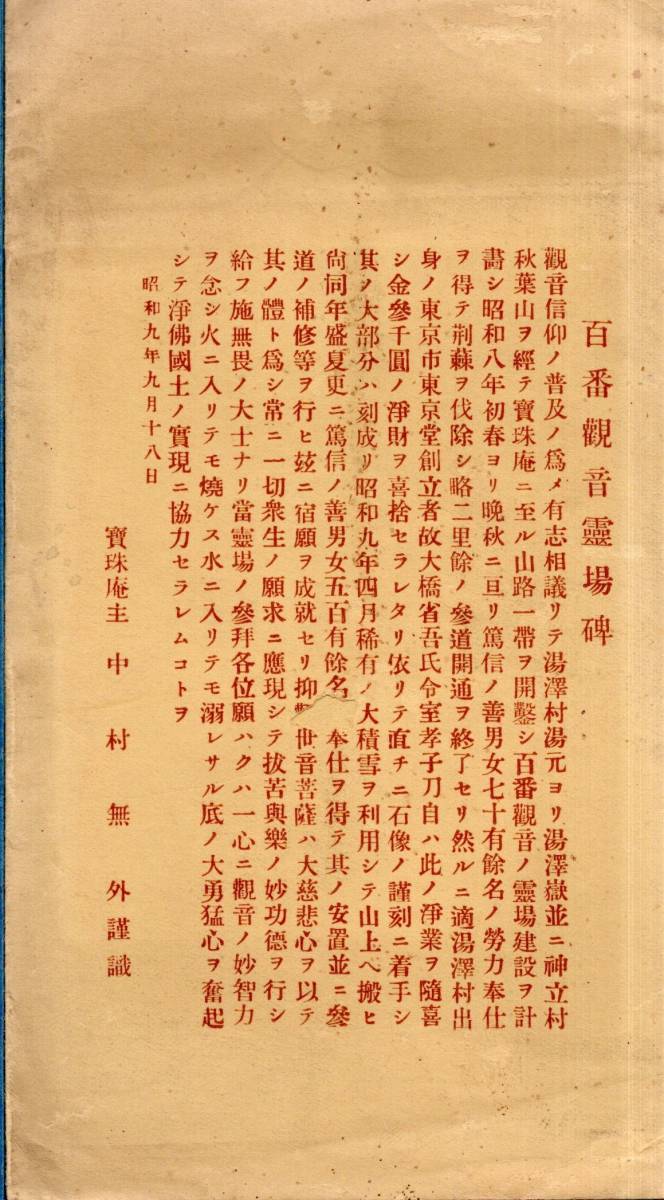 百番觀音靈場碑
觀音信仰ノ普及ノ爲メ有志相議リテ湯澤村湯元ヨリ湯澤嶽並ニ神立村
秋葉山ヲ經テ寶珠庵ニ至ル山路一帶ヲ開鑿シ百番觀音ノ靈場建設ヲ計
畵シ昭和八年初春ヨリ晩秋ニ亘リ篤信ノ善男女七十有餘名ノ勞力奉仕
ヲ得テ荆蘇ヲ伐除シ略二里餘ノ參道開通ヲ終了セリ然ルニ適湯澤村出
身ノ東京市東京堂創立者故大橋省吾氏令室孝子刀自ハ此ノ淨業ヲ隨喜
シ金參千圓ノ淨財ヲ喜捨セラレタリ依リテ直チニ石像ノ謹刻ニ着手シ
其ノ大部分ハ刻成リ昭和九年四月稀有ノ大積雪ヲ利用シテ山上ヘ搬ヒ
尙同年盛夏更ニ篤信ノ善男女五百有餘名 奉仕ヲ得テ其ノ安置並ニ參
道ノ補修等ヲ行ヒ玆ニ宿願ヲ成就セリ抑 世音菩薩ハ大慈悲心ヲ以テ
其ノ體ト爲シ常ニ一切衆生ノ願求ニ應現シテ拔苦與樂ノ妙功德ヲ行シ
給フ施無畏ノ大士ナリ當靈場ノ參拜各位願ハクハ一心ニ觀音ノ妙智力
ヲ念シ火ニ入リテモ燒ケス水ニ入リテモ溺レサル底ノ大勇猛心ヲ奮起
シテ淨佛國土ノ實現ニ協力セラレムコトヲ
昭和九年九月十八日
寶珠庵主 中村無外謹識